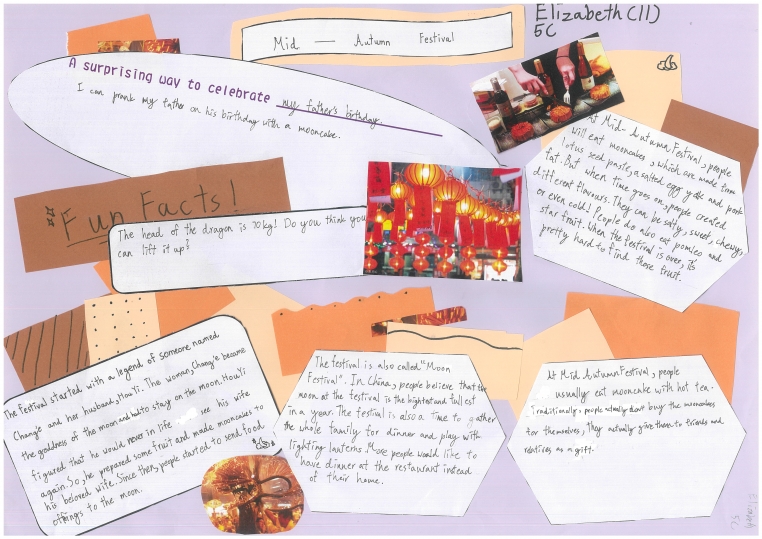 Elizabeth (11)
5C
Mid — Autumn Festival
A surprising way to celebrate my father's birthday.
I can prank my father on his birthday with a mooncake.
At Mid-Autumn Festival, people
will eat mooncakes, which are made from
lotus seed paste, a salted egg yolk and pork
fat. But when time goes on, people created
different flavours. They can be salty, sweet, chewy,
or even cold! People do also eat pomleo and
star fruit. When the festival is over, it's
pretty hard to find those fruit.
Fun Facts!
The head of the dragon is 70kg! Do you think you
can lift it up?
The Festival started with a legend of someone named
Chang'e and her husband, Hou Yi. The woman, Chang'e became
the goddess of the moon and had to stay on the moon. Hou Yi
figured that he would never in life see his wife
again. So, he prepared some fruit and made mooncakes to
his beloved wife. Since then, people started to send food
offrings to the moon.
The festival is also called "Moon
Festival". In China, people believe that the
moon at the festival is the brightest and fullest
in a year. The festival is also a time to gather
the whole family for dinner and play with
lighting lanterns. More people would like to
have dinner at the restaurant instead
of their home.
At Mid Autumn Festival, people
usually eat mooncake with hot tea.
Traditionally, people actually don't buy the mooncakes
for themselves, they actually give them to friends and
relatives as a gift.
5C